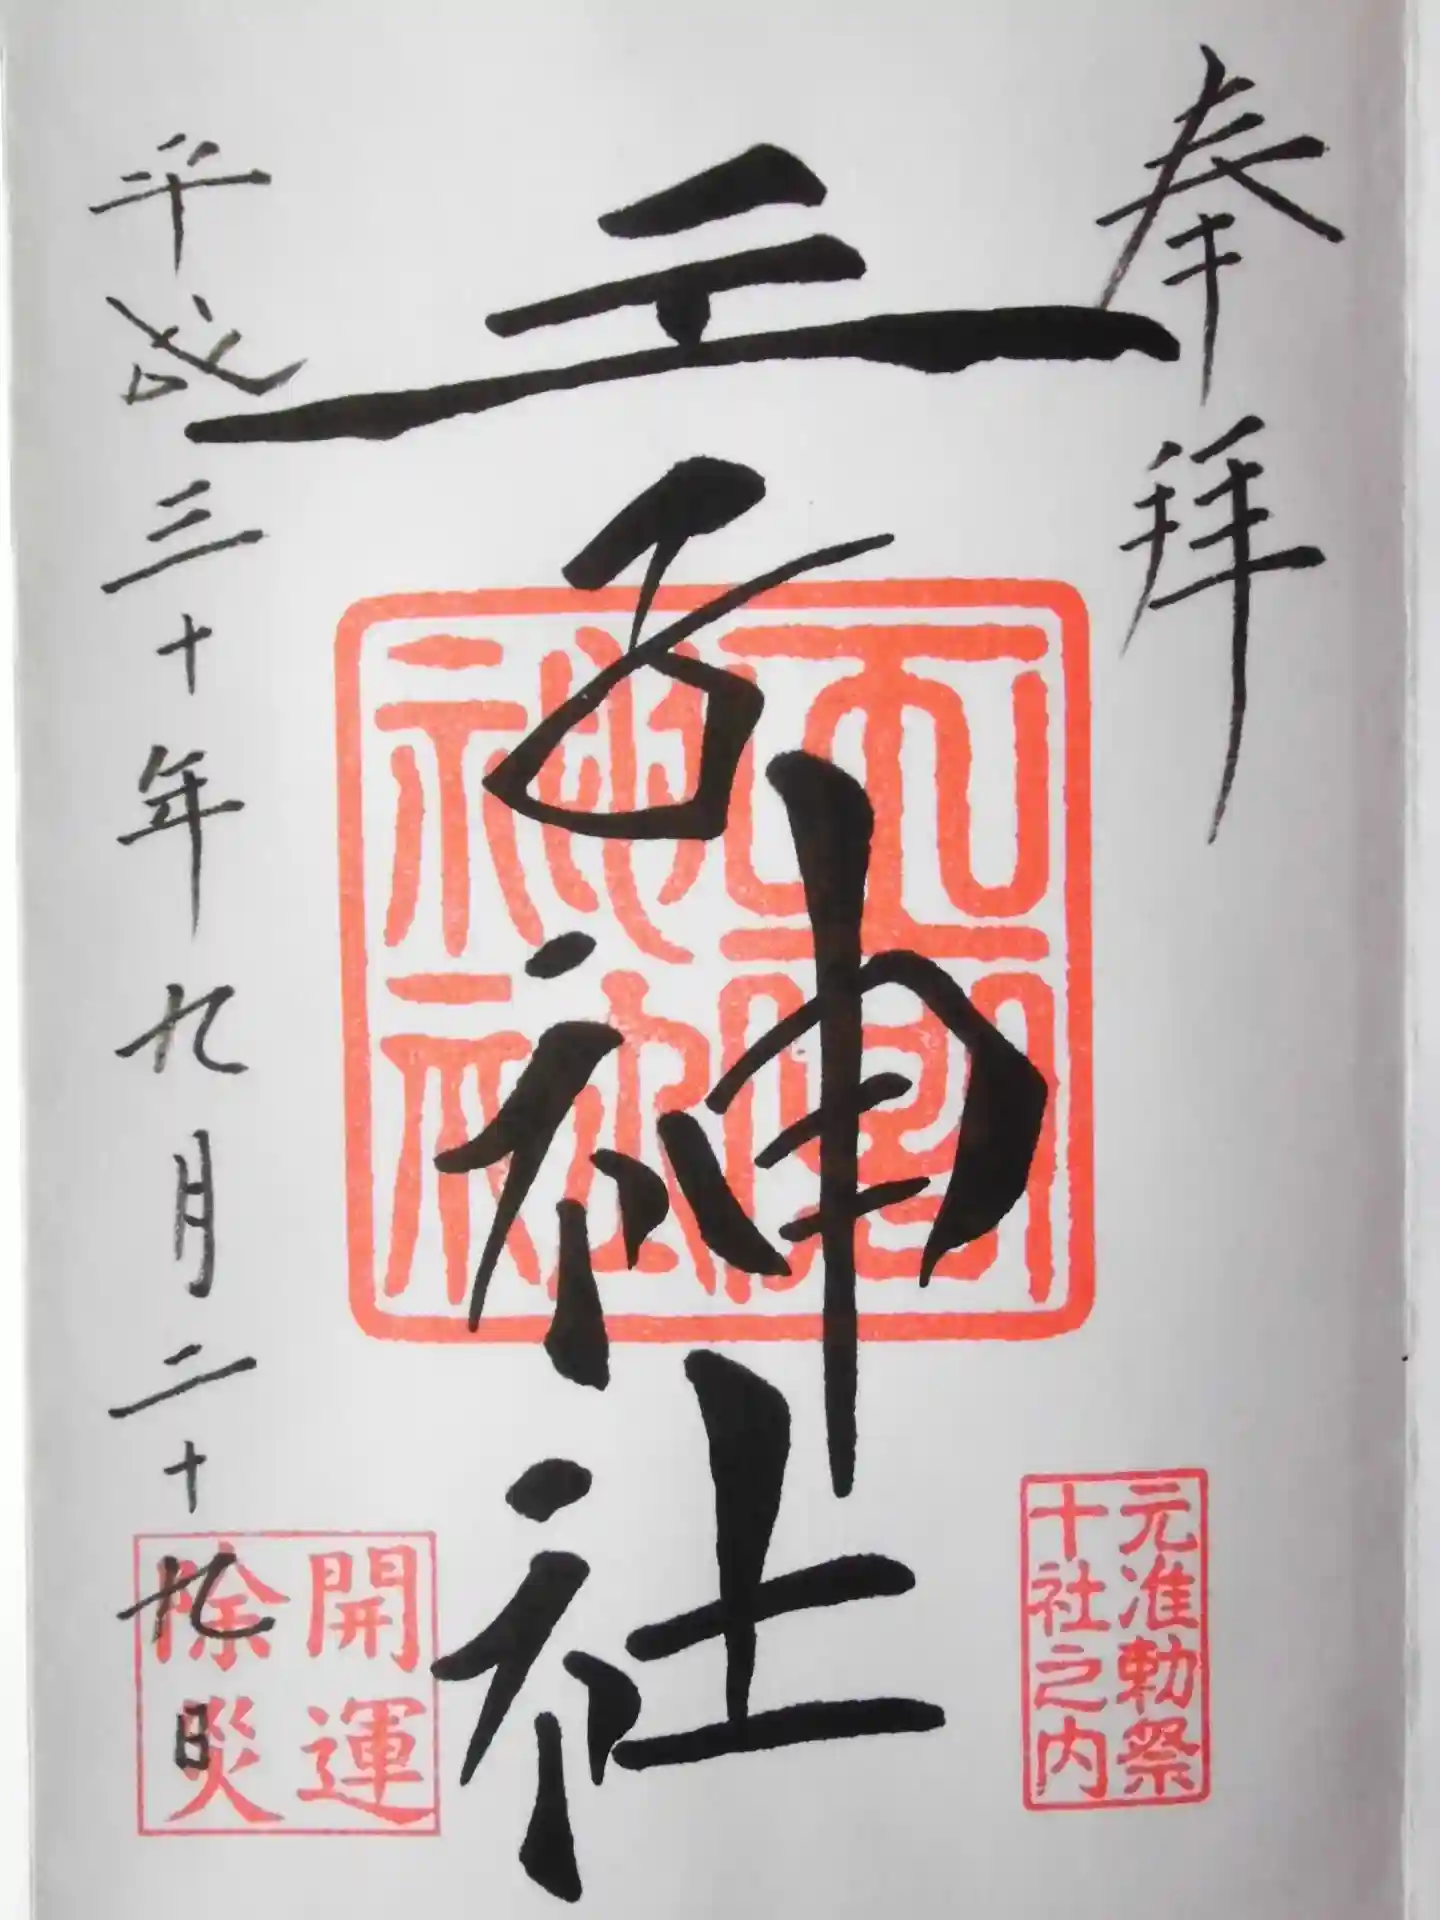 奉拝
王子神社
平成三十年九月二十九日
元准勅祭
十社之内
開運
除災